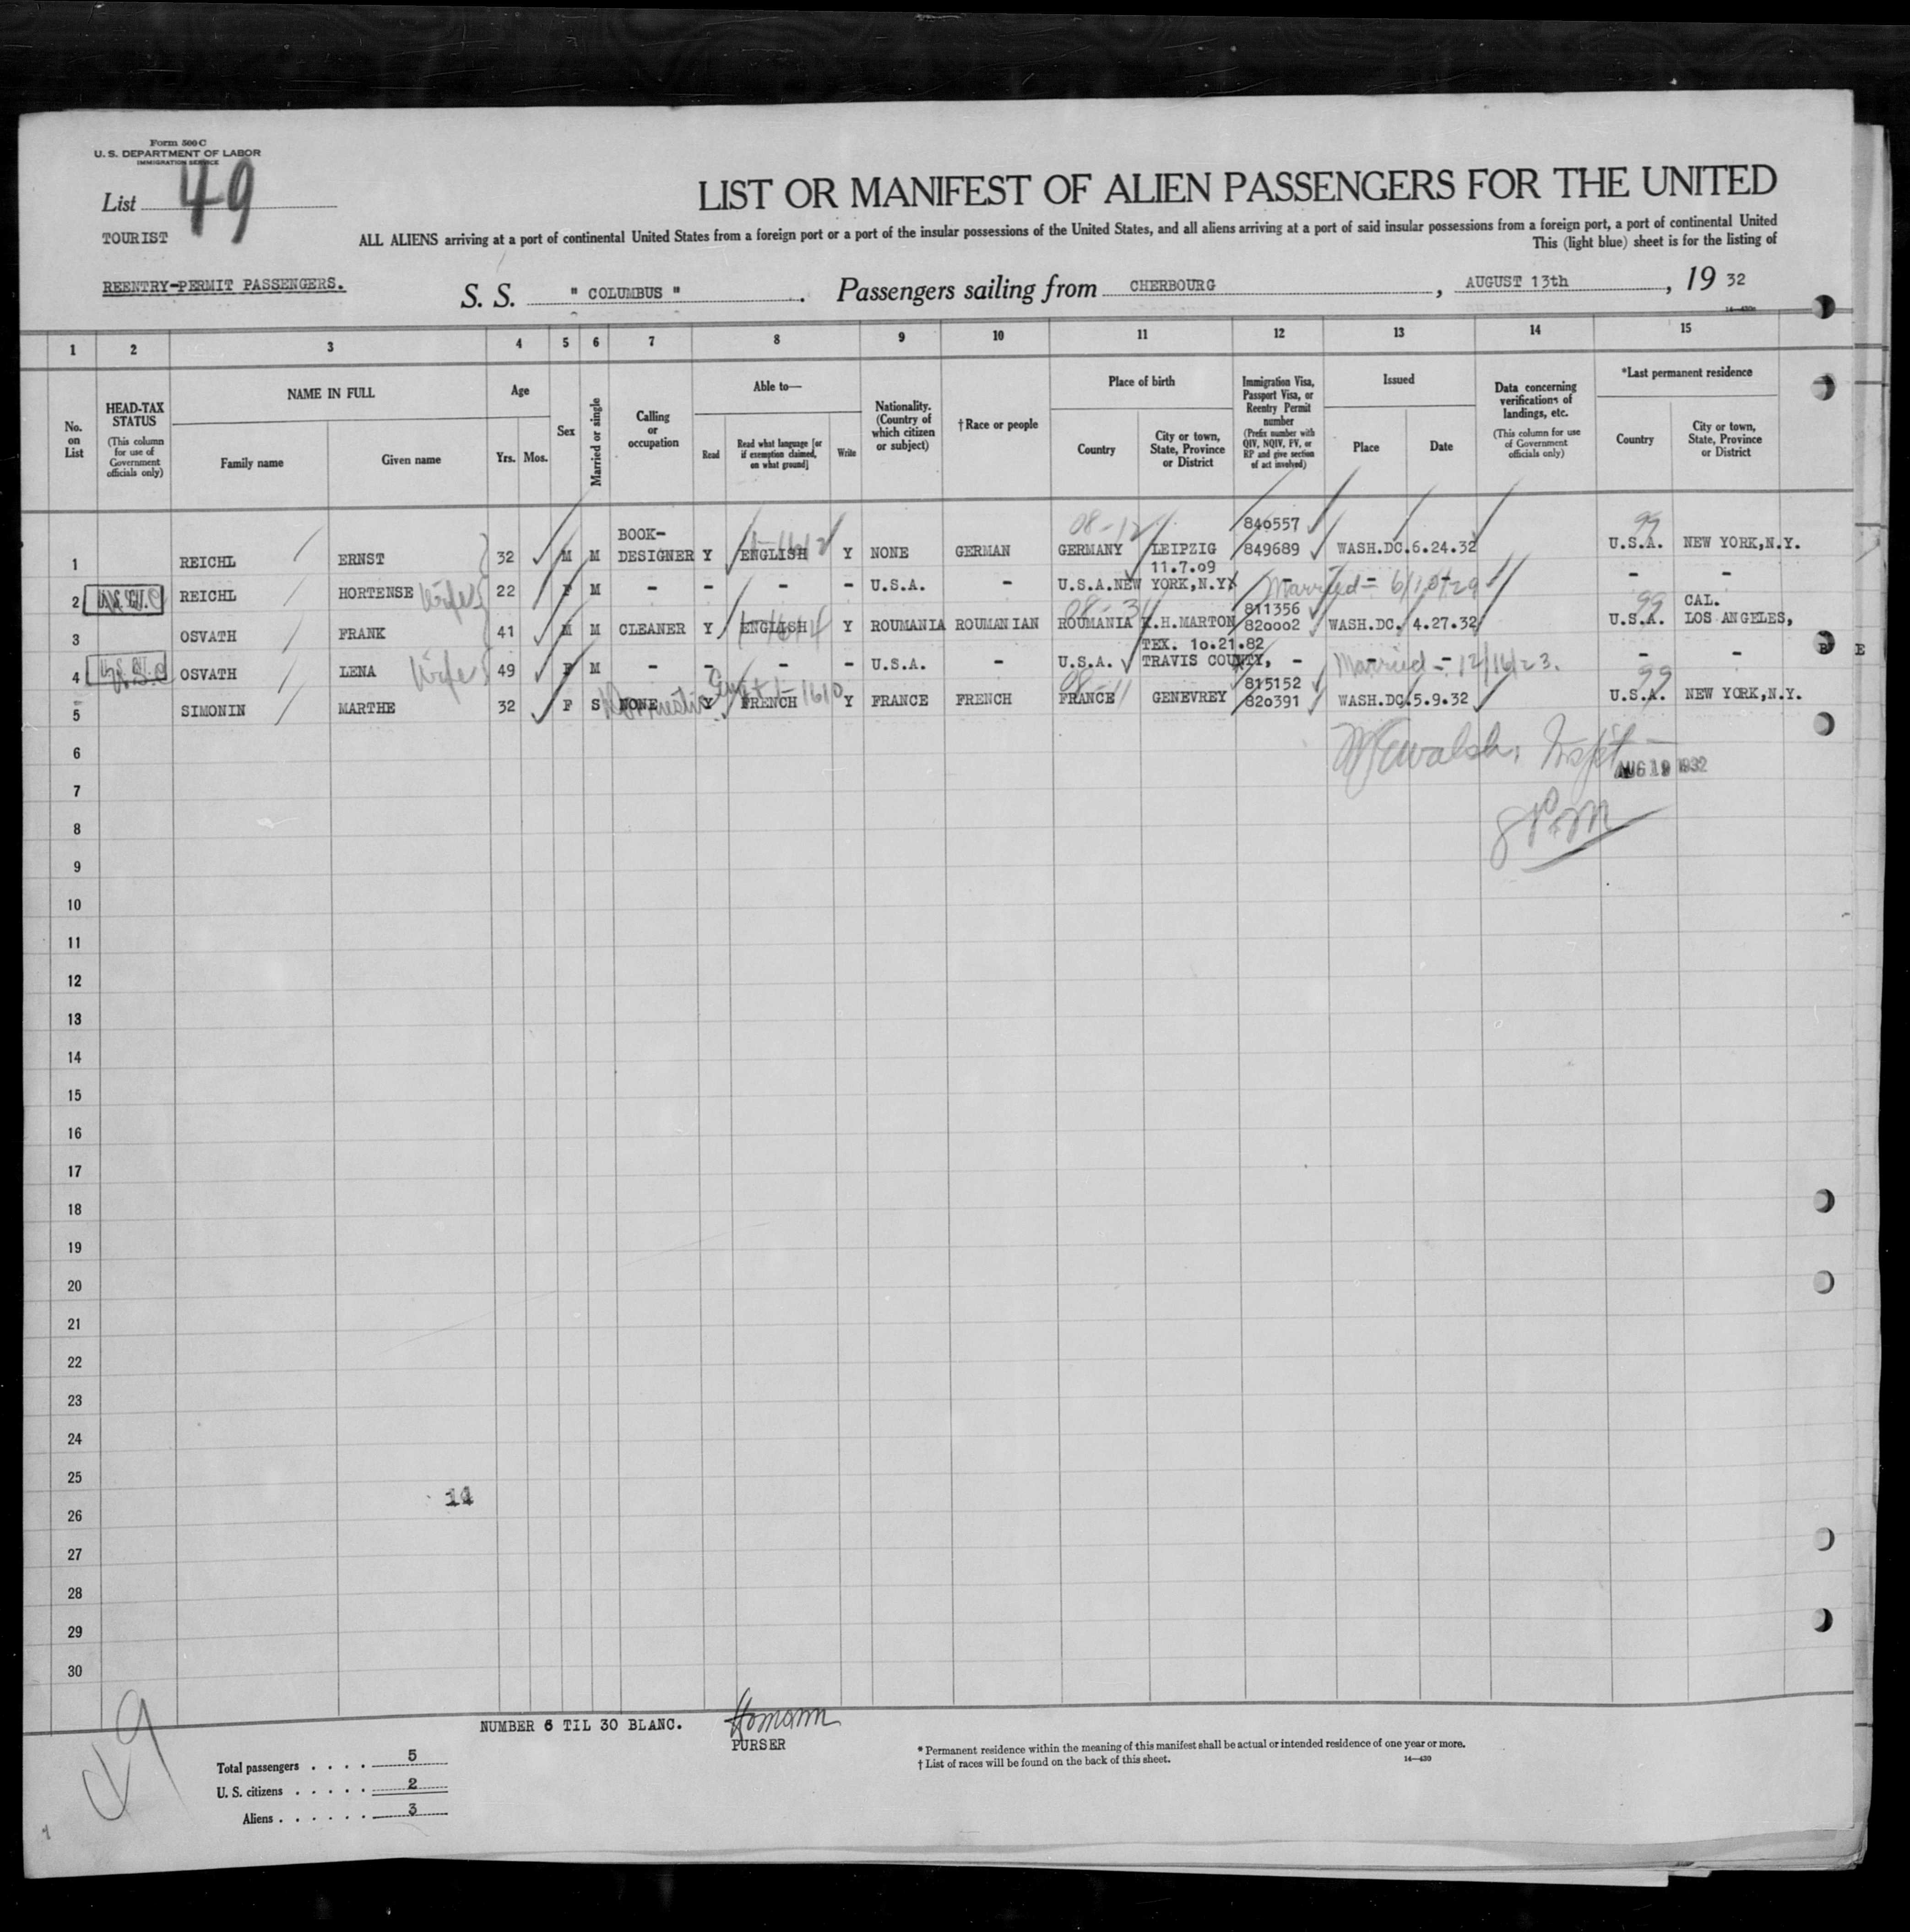 Form 500 C
U. S. DEPARTMENT OF LABOR
IMMIGRATION SERVICE
List 49
TOURIST
LIST OR MANIFEST OF ALIEN PASSENGERS FOR THE UNITED
ALL ALIENS arriving at a port of continental United States from a foreign port or a port of the insular possessions of the United States, and all aliens arriving at a port of said insular possessions from a foreign port, a port of continental United
This (light blue) sheet is for the listing of
REENTRY-PERMIT PASSENGERS.
S. S. " COLUMBUS ". Passengers sailing from CHERBOURG, AUGUST 13th, 19 32
1 2 3 4 5 6 7 8 9 10 11 12 13 14 15
No. on List
HEAD-TAX STATUS (This column for use of Government officials only)
NAME IN FULL
Family name Given name
Age
Yrs. Mos.
Sex
Married or single
Calling or occupation
Able to—
Read
Read what language [or if exemption claimed, on what ground]
Write
Nationality. (Country of which citizen or subject)
†Race or people
Place of birth
Country
City or town, State, Province or District
Immigration Visa, Passport Visa, or Reentry Permit number (Prefix number with QIV, NQIV, PV, or RP and give section of act involved)
Issued
Place Date
Data concerning verifications of landings, etc. (This column for use of Government officials only)
*Last permanent residence
Country
City or town, State, Province or District
BOOK- 08-12 840557 99
1 REICHL ERNST 32 M M DESIGNER Y ENGLISH Y NONE GERMAN GERMANY LEIPZIG 849689 WASH.DC. 6.24.32 U.S.A. NEW YORK,N.Y.
11.7.09
2 REICHL HORTENSE Wife 22 F M - - - - U.S.A. - U.S.A. NEW YORK,N.Y. - Married - 6/10/29 - -
811356 99 CAL.
3 OSVATH FRANK 41 M M CLEANER Y ENGLISH Y ROUMANIA ROUMANIAN ROUMANIA .H.MARTON 820002 WASH.DC. 4.27.32 U.S.A. LOS ANGELES,
TEX. 10.21.82
4 U.S.C. OSVATH LENA Wife 49 F M - - - - U.S.A. - U.S.A. TRAVIS COUNTY, - Married - 12/16/23. - -
08-11 815152 99
5 SIMONIN MARTHE 32 F S NONE Y FRENCH 1-1610 Y FRANCE FRENCH FRANCE GENEVREY 820391 WASH.DC. 5.9.32 U.S.A. NEW YORK,N.Y.
6
AUG 19 1932
7
8
8 P.M
9
10
11
12
13
14
15
16
17
18
19
20
21
22
23
24
25
26
27
28
29
30
NUMBER 6 TIL 30 BLANC.
Homann
PURSER
49
Total passengers . . . . 5
U. S. citizens . . . . . 2
Aliens . . . . . . 3
* Permanent residence within the meaning of this manifest shall be actual or intended residence of one year or more.
† List of races will be found on the back of this sheet.
14—430